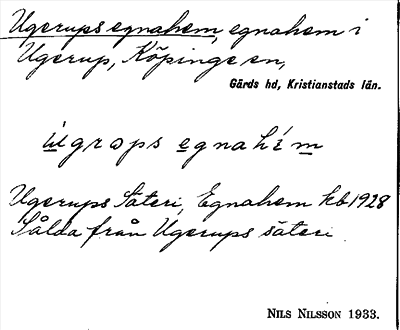 Ugerups egnahem, egnahem i
Ugerup, Köpinge sn,
Gärds hd, Kristianstads län.
ùgrops egnahém
Ugerups Säteri, Egnahem kb 1928
Sålda från Ugerups säteri
NILS NILSSON 1933.